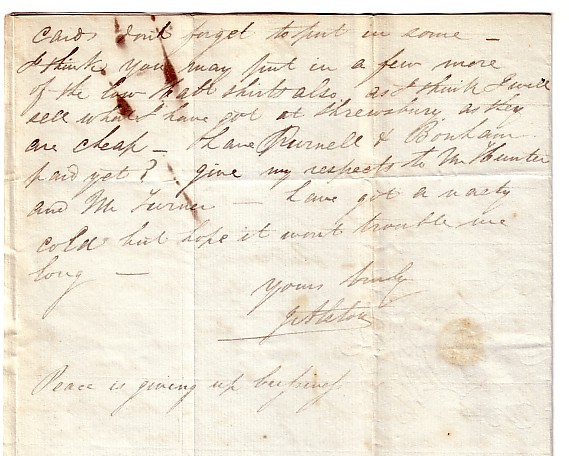 cards don't forget to put in some —
I think you may put in a few more
of the low shirts also as I think I will
sell what I have got at Shrewsbury as they
are cheap — have Purnell & Bonham
paid yet? give my respects to Mr Hunter
and Mr Turner — have got a nasty
cold but hope it wont trouble me
long —
yours truly
Peace is giving up business